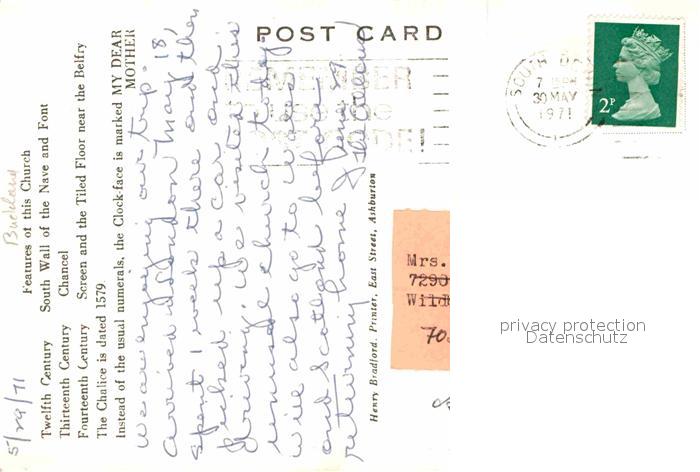 5/29/71
Buckland
Features of this Church
Twelfth Century South Wall of the Nave and Font
Thirteenth Century Chancel
Fourteenth Century Screen and the Tiled Floor near the Belfry
The Chalice is dated 1579.
Instead of the usual numerals, the Clock-face is marked MY DEAR
MOTHER
We are enjoying our trip.
Arrived in London May 18,
spent 1 week there and then
picked up a car and
driving. We visited this
unusual church today
will also go to Wales
and Scotland before
returning home June 19
Henry Bradford, Printer, East Street, Ashburton
POST CARD
REMEMBER
use the
POSTCODE
SOUTH
7
30 MAY
1971
2P
Mrs.
7290
Wild
70
privacy protection
Datenschutz